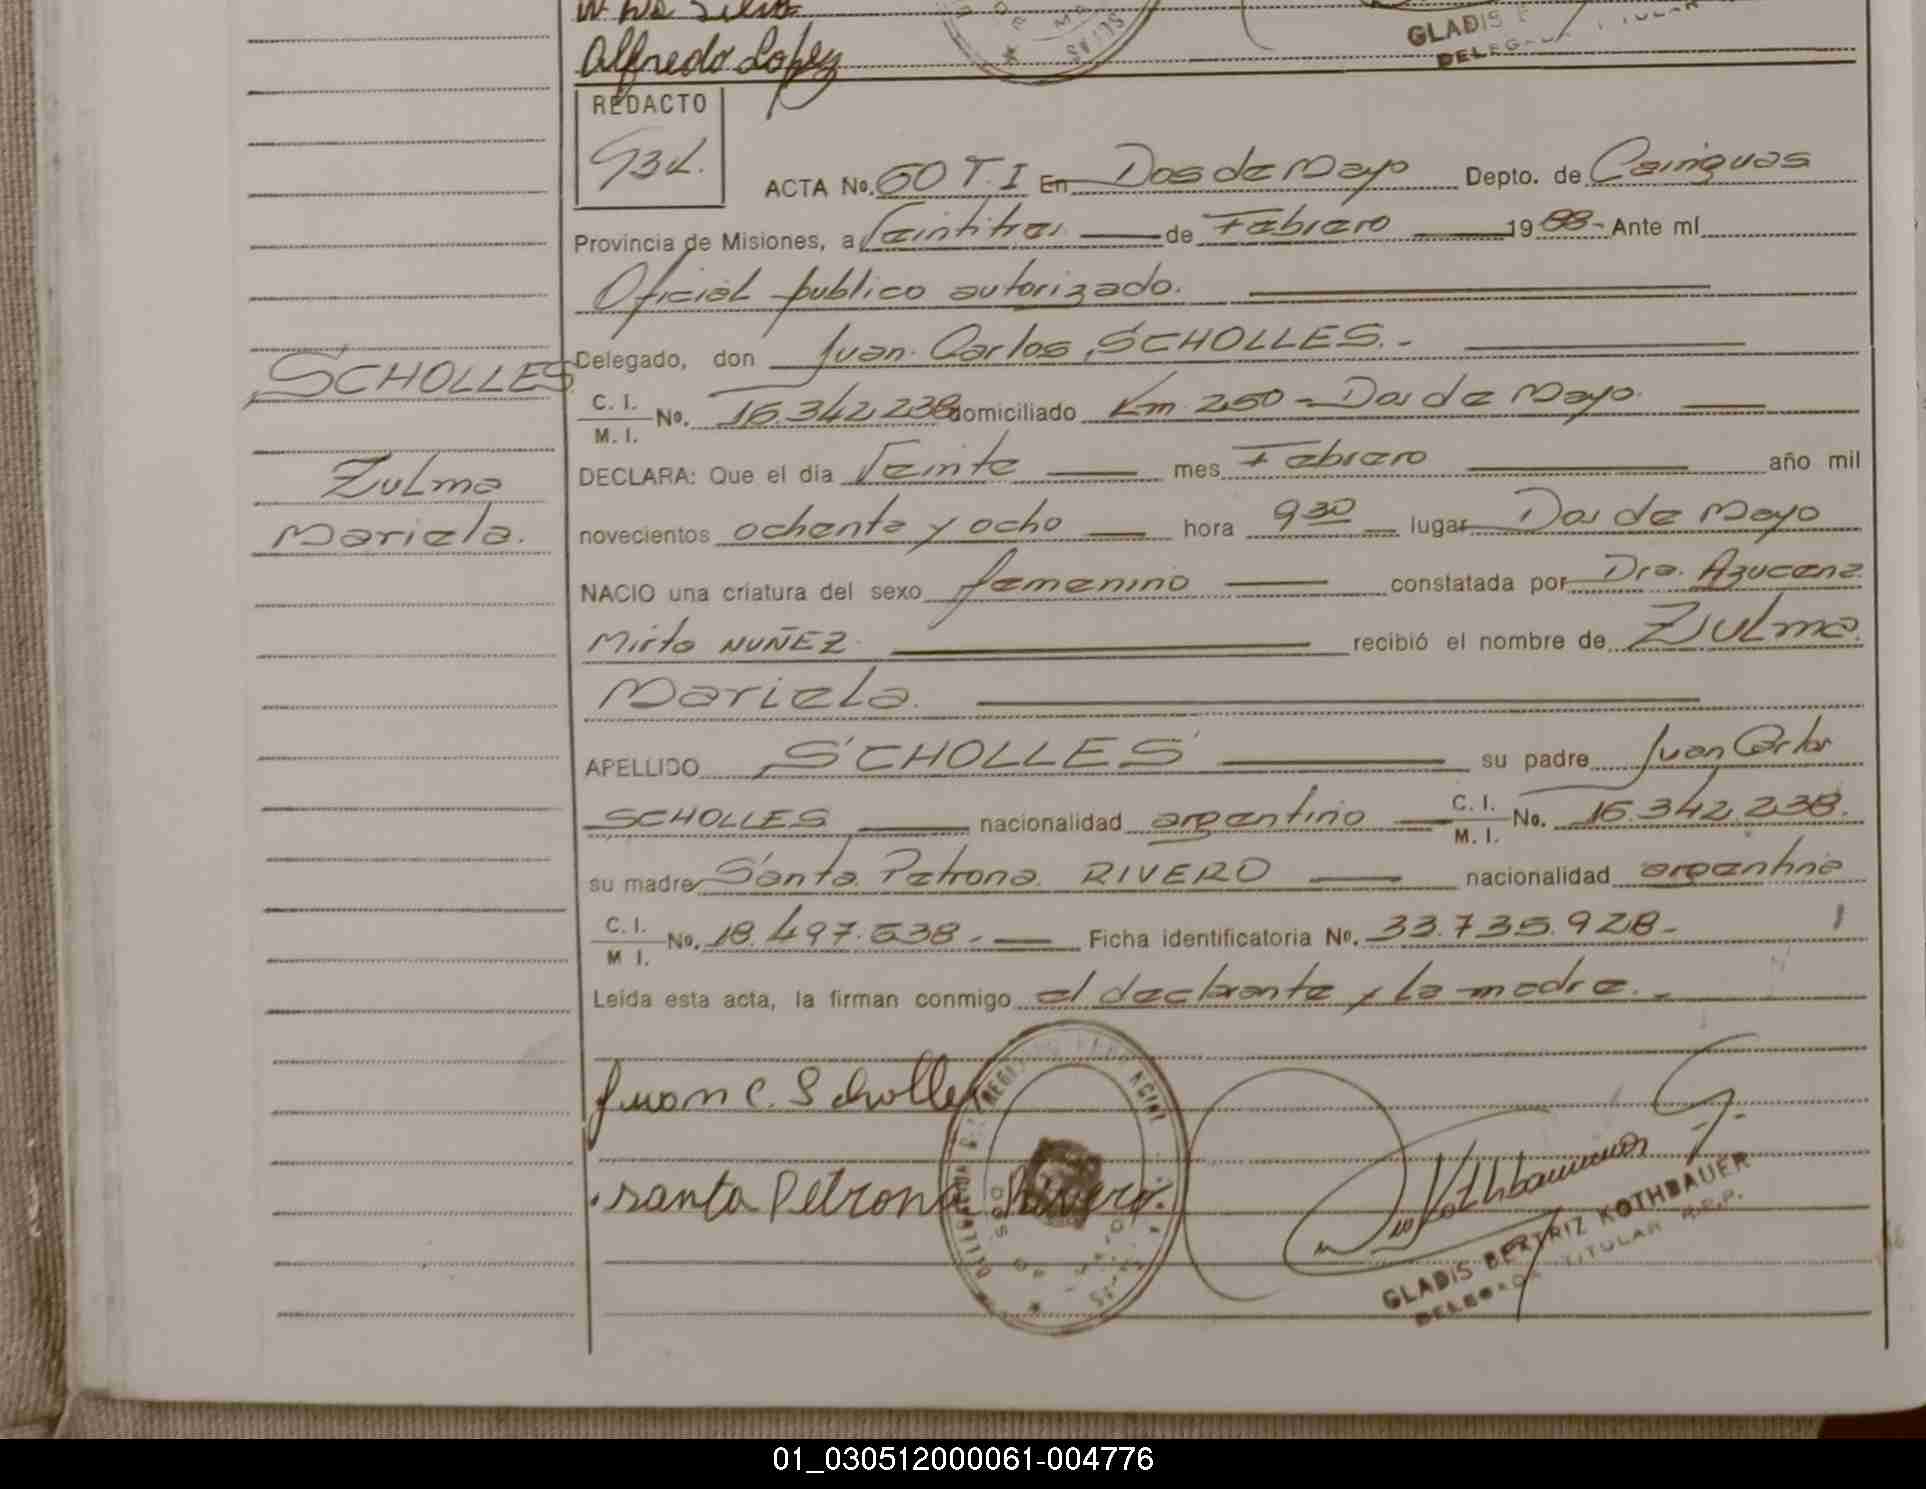 Alfredo Lopez
GLADIS
REDACTO
ACTA No. 60 T. I En Dos de Mayo Depto. de Cainguas
Provincia de Misiones, a Veintitres de Febrero 19 88 - Ante mí
Oficial publico autorizado.
SCHOLLES
Delegado, don Juan Carlos SCHOLLES. -
C. I.
M. I. No. 16.342.238 domiciliado Km 250 - Dos de Mayo.
Zulma
DECLARA: Que el día Veinte mes Febrero año mil
Mariela.
novecientos ochenta y ocho hora 9 30 lugar Dos de Mayo
NACIO una criatura del sexo femenino constatada por Dra. Azucena
Mirta NUÑEZ recibió el nombre de Zulma
Mariela.
APELLIDO SCHOLLES su padre Juan Carlos
SCHOLLES nacionalidad argentino C. I.
M. I. No. 16.342.238.
su madre Santa Petrona RIVERO nacionalidad argentina
C. I.
M I. No. 18.497.638 - Ficha identificatoria No. 33.735.928 -
Leída esta acta, la firman conmigo el declarante y la madre. -
Juan C. Scholles
Santa Petrona Rivero.
Kothbauer
GLADIS BEATRIZ KOTHBAUER
DELEGADA TITULAR R.P.P.
01_030512000061-004776